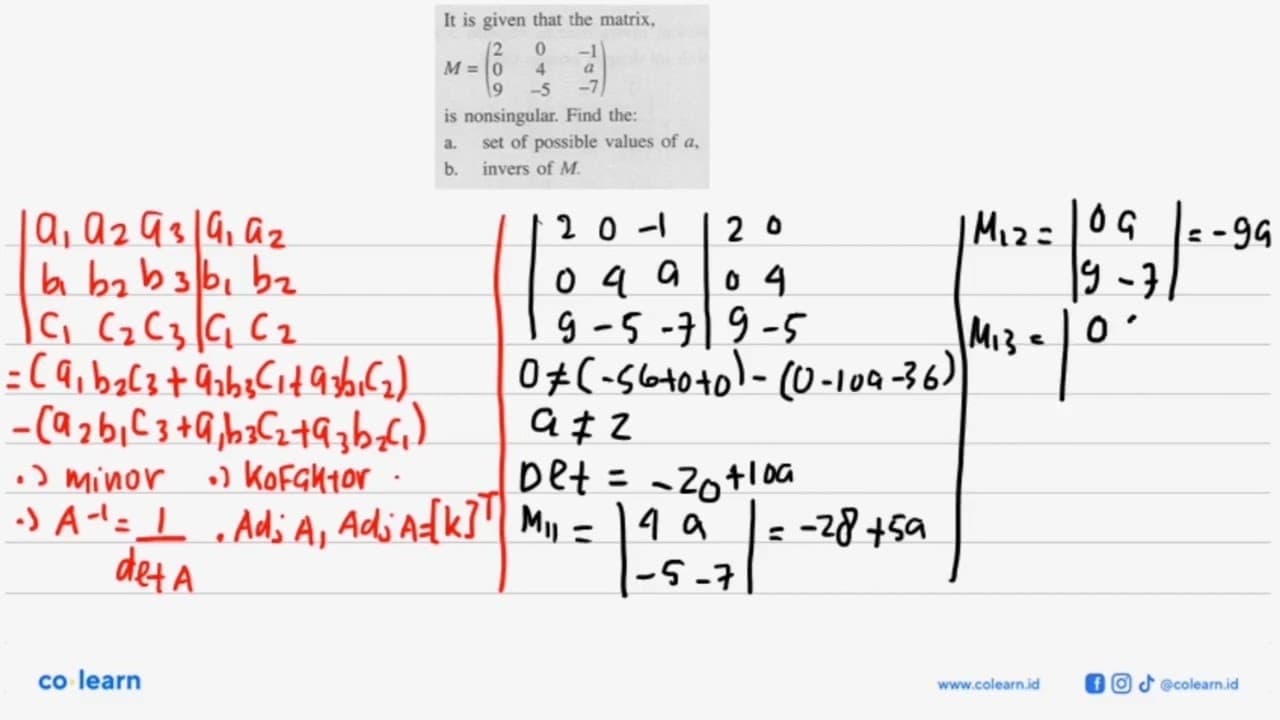 It is given that the matrix,
M = (2 0 -1
0 4 a
9 -5 -7)
is nonsingular. Find the:
a. set of possible values of a,
b. invers of M.
|a₁ a₂ a₃|a₁ a₂
b₁ b₂ b₃|b₁ b₂
|c₁ c₂ c₃|c₁ c₂
=(a₁b₂c₃+a₂b₃c₁+a₃b₁c₂)
-(a₂b₁c₃+a₁b₃c₂+a₃b₂c₁)
.) minor .) KOFAKtor .
.) A⁻¹ = 1/det A . Adj A, Adj A=[k]ᵀ
|2 0 -1|2 0
0 4 a|0 4
9 -5 -7|9 -5
0≠(-56+0+0)-(0-10a-36)
a ≠ 2
Det = -20+10a
M₁₁ = |4 a
-5 -7| = -28+5a
M₁₂ = |0 a
9 -7| = -9a
M₁₃ = |0
co learn
www.colearn.id
@colearn.id